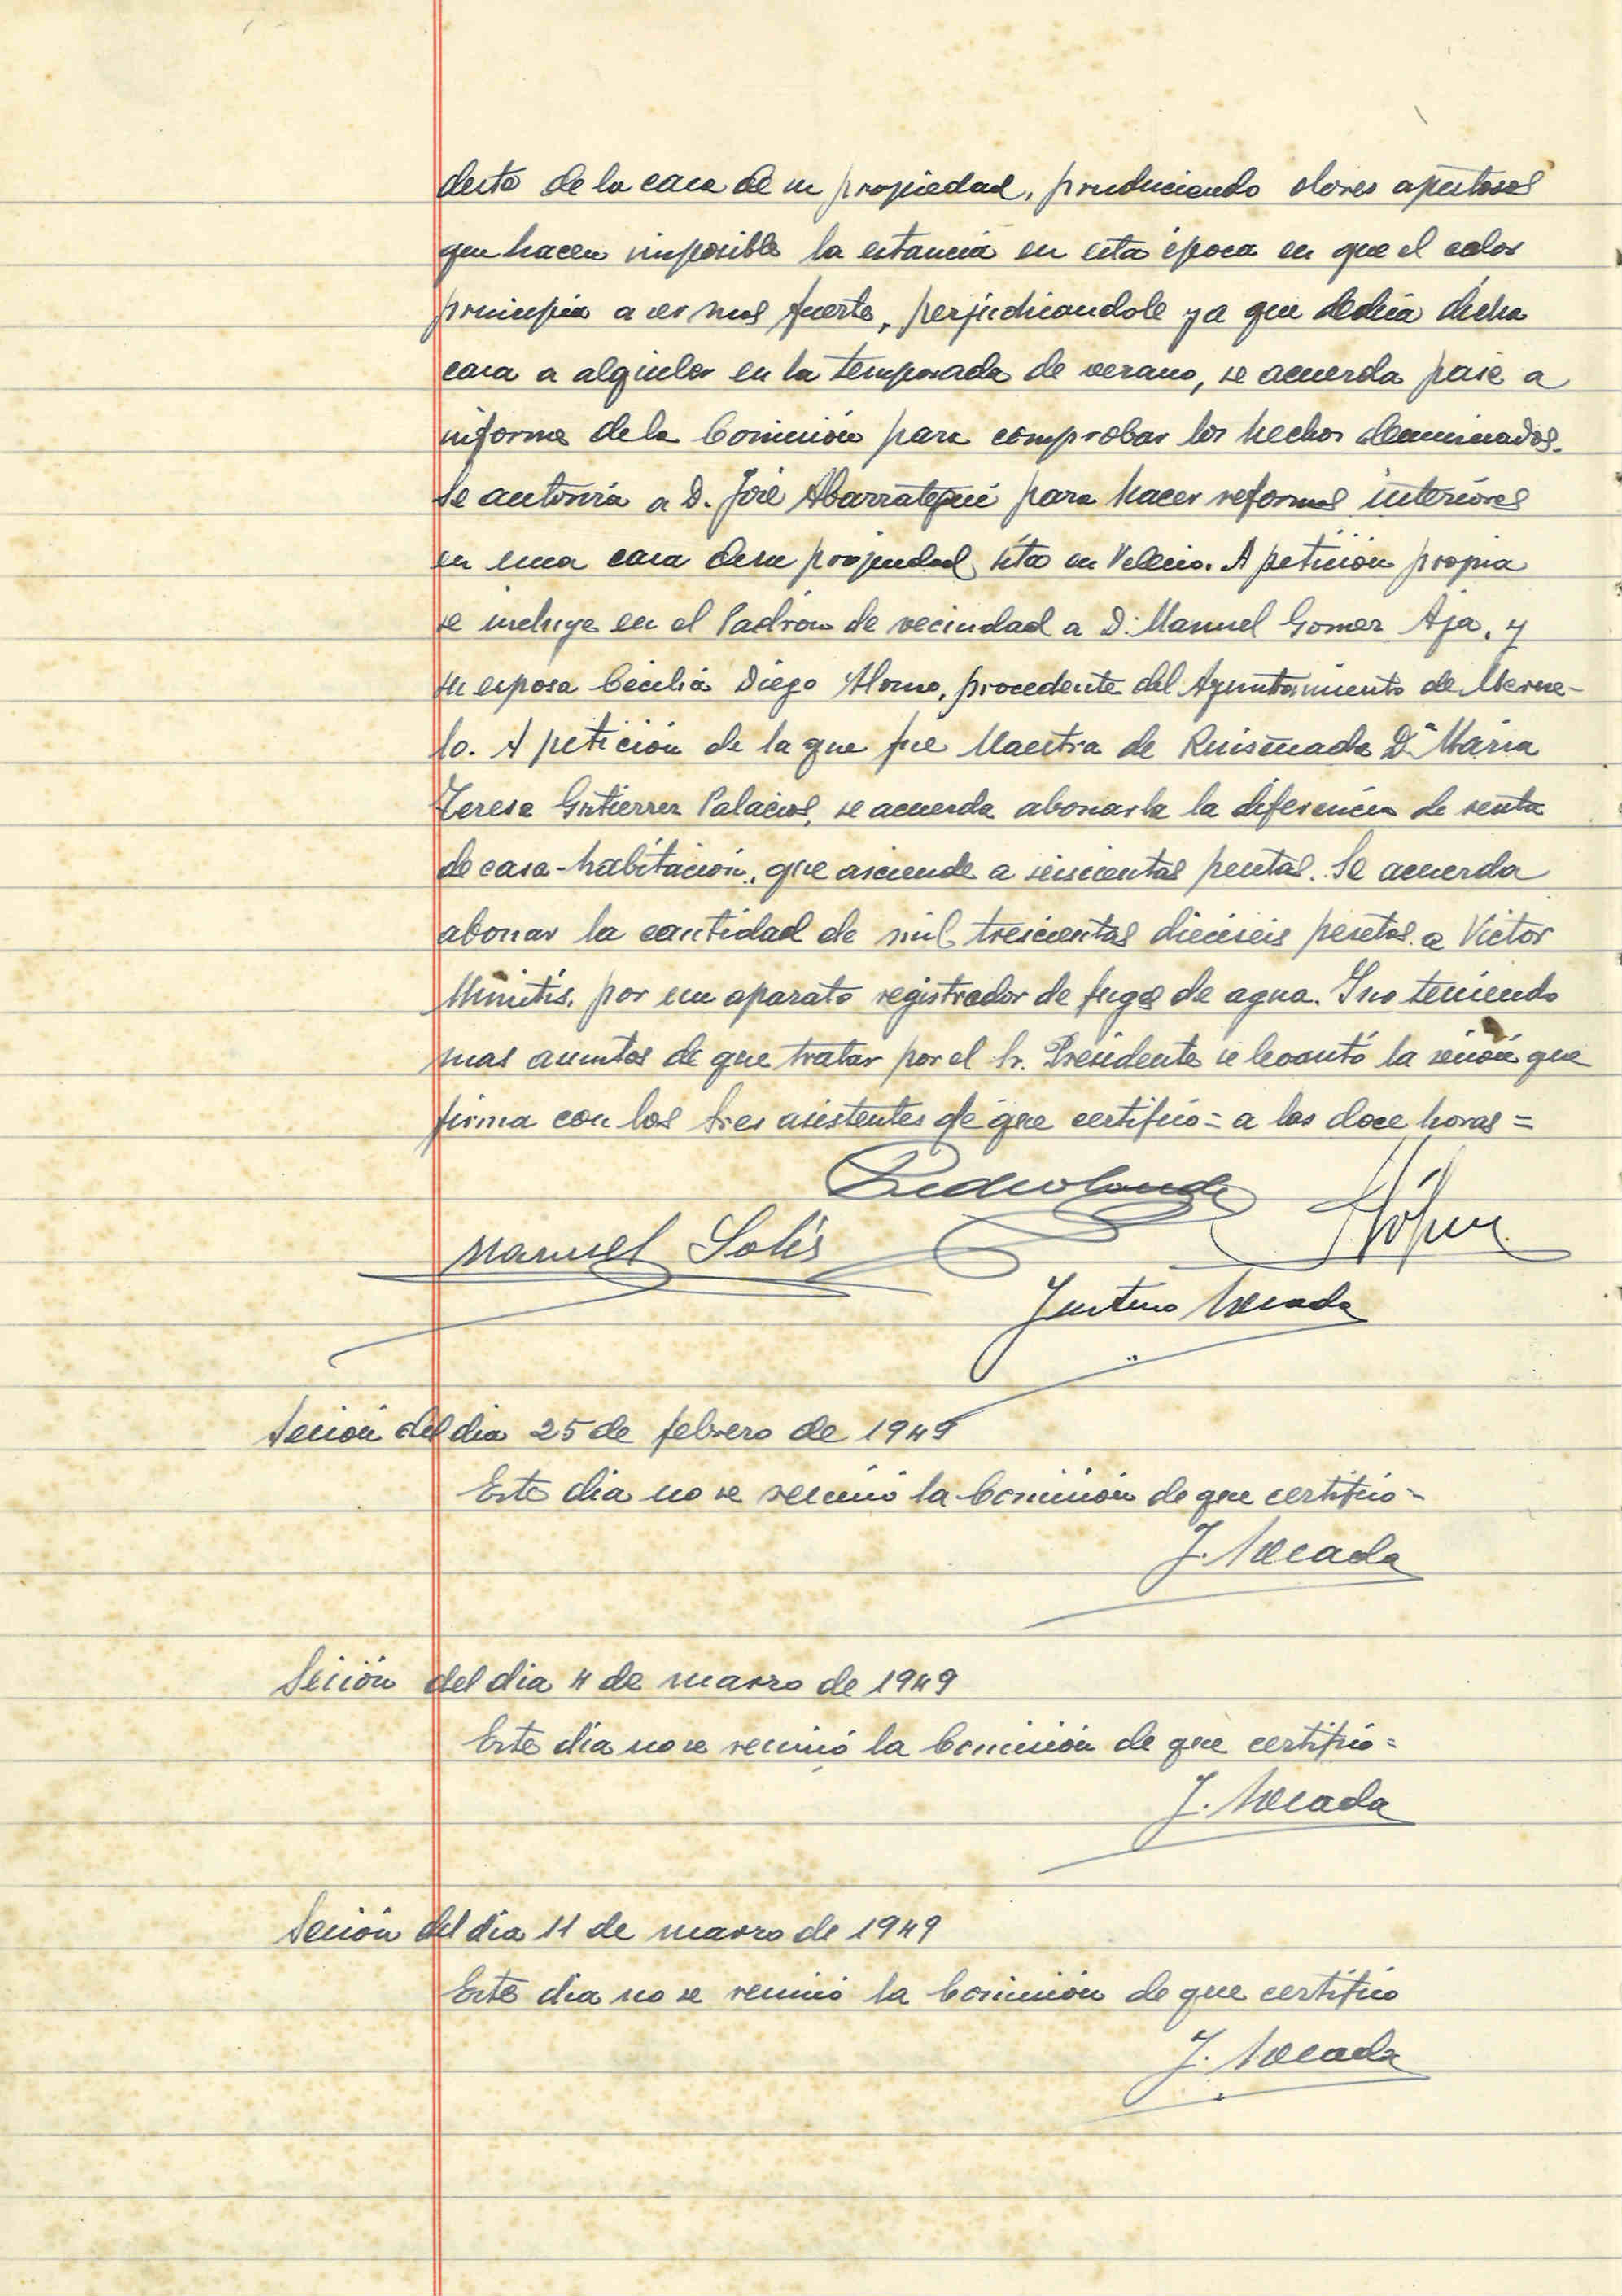 de la casa de su propiedad, produciendo olores apestosos
que hacen imposible la estancia en esta época en que el calor
principia a ser mas fuerte, perjudicandole ya que dedica dicha
casa a alquiler en la temporada de verano, se acuerda pase a
informe de la Comisión para comprobar los hechos denunciados.
Se autoriza a D. José Abarrategui para hacer reformas interiores
en una casa de su propiedad sita en Velecio. A petición propia
se incluye en el Padrón de vecindad a D. Manuel Gomez Aja, y
su esposa Cecilia Diego Alonso, procedente del Ayuntamiento de Merue-
lo. A petición de la que fue Maestra de Ruiseñada Dª Maria
Teresa Gutierrez Palacios, se acuerda abonarla la diferencia de renta
de casa-habitación, que asciende a seiscientas pesetas. Se acuerda
abonar la cantidad de mil trescientas dieciseis pesetas a Victor
por un aparato registrador de fugas de agua. Y no teniendo
mas asuntos de que tratar por el Sr. Presidente se levantó la sesión que
firma con los tres asistentes de que certifico = a las doce horas =
Manuel Solís
Justino
Sesión del dia 25 de febrero de 1949
Este dia no se reunió la Comisión de que certifico =
J.
Sesión del dia 4 de marzo de 1949
Este dia no se reunió la Comisión de que certifico =
J.
Sesión del dia 11 de marzo de 1949
Este dia no se reunió la Comisión de que certifico
J.